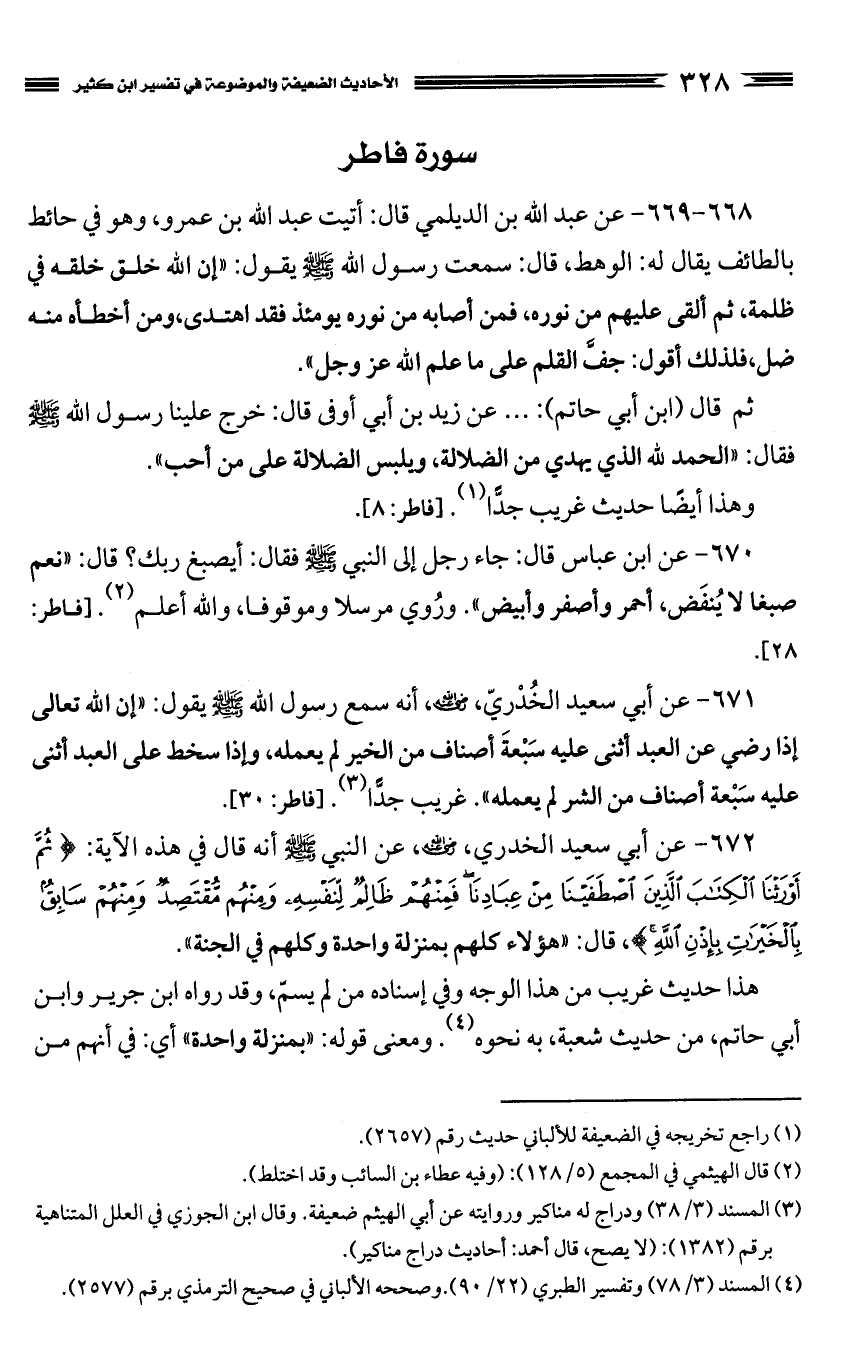 ٣٢٨ الأحاديث الضعيفة والموضوعة في تفسير ابن كثير
سورة فاطر
٦٦٨-٦٦٩- عن عبد الله بن الديلمي قال: أتيت عبد الله بن عمرو، وهو في حائط
بالطائف يقال له: الوهط، قال: سمعت رسول الله ﷺ يقول: «إن الله خلق خلقه في
ظلمة، ثم ألقى عليهم من نوره، فمن أصابه من نوره يومئذ فقد اهتدى،ومن أخطأه منه
ضل،فلذلك أقول: جفَّ القلم على ما علم الله عز وجل».
ثم قال (ابن أبي حاتم): ... عن زيد بن أبي أوفى قال: خرج علينا رسول الله ﷺ
فقال: «الحمد لله الذي يهدي من الضلالة، ويلبس الضلالة على من أحب».
وهذا أيضًا حديث غريب جدًّا(١). [فاطر: ٨].
٦٧٠- عن ابن عباس قال: جاء رجل إلى النبي ﷺ فقال: أيصبغ ربك؟ قال: «نعم
صبغا لا يُنفَض، أحمر وأصفر وأبيض». ورُوي مرسلا وموقوفا، والله أعلم(٢). [فاطر:
٢٨].
٦٧١- عن أبي سعيد الخُدْريّ، رضي الله عنه، أنه سمع رسول الله ﷺ يقول: «إن الله تعالى
إذا رضي عن العبد أثنى عليه سَبْعةَ أصناف من الخير لم يعمله، وإذا سخط على العبد أثنى
عليه سَبْعة أصناف من الشر لم يعمله». غريب جدًّا(٣). [فاطر: ٣٠].
٦٧٢- عن أبي سعيد الخدري، رضي الله عنه، عن النبي ﷺ أنه قال في هذه الآية: ﴿ ثُمَّ
أَوْرَثْنَا ٱلْكِتَٰبَ ٱلَّذِينَ ٱصْطَفَيْنَا مِنْ عِبَادِنَا ۖ فَمِنْهُمْ ظَالِمٌ لِّنَفْسِهِۦ وَمِنْهُم مُّقْتَصِدٌ وَمِنْهُمْ سَابِقٌۢ
بِٱلْخَيْرَٰتِ بِإِذْنِ ٱللَّهِ ۚ ﴾، قال: «هؤلاء كلهم بمنزلة واحدة وكلهم في الجنة».
هذا حديث غريب من هذا الوجه وفي إسناده من لم يسمّ، وقد رواه ابن جرير وابن
أبي حاتم، من حديث شعبة، به نحوه(٤). ومعنى قوله: «بمنزلة واحدة» أي: في أنهم من
(١) راجع تخريجه في الضعيفة للألباني حديث رقم (٢٦٥٧).
(٢) قال الهيثمي في المجمع (٥/ ١٢٨): (وفيه عطاء بن السائب وقد اختلط).
(٣) المسند (٣/ ٣٨) ودراج له مناكير وروايته عن أبي الهيثم ضعيفة. وقال ابن الجوزي في العلل المتناهية
برقم (١٣٨٢): (لا يصح، قال أحمد: أحاديث دراج مناكير).
(٤) المسند (٣/ ٧٨) وتفسير الطبري (٢٢/ ٩٠).وصححه الألباني في صحيح الترمذي برقم (٢٥٧٧).